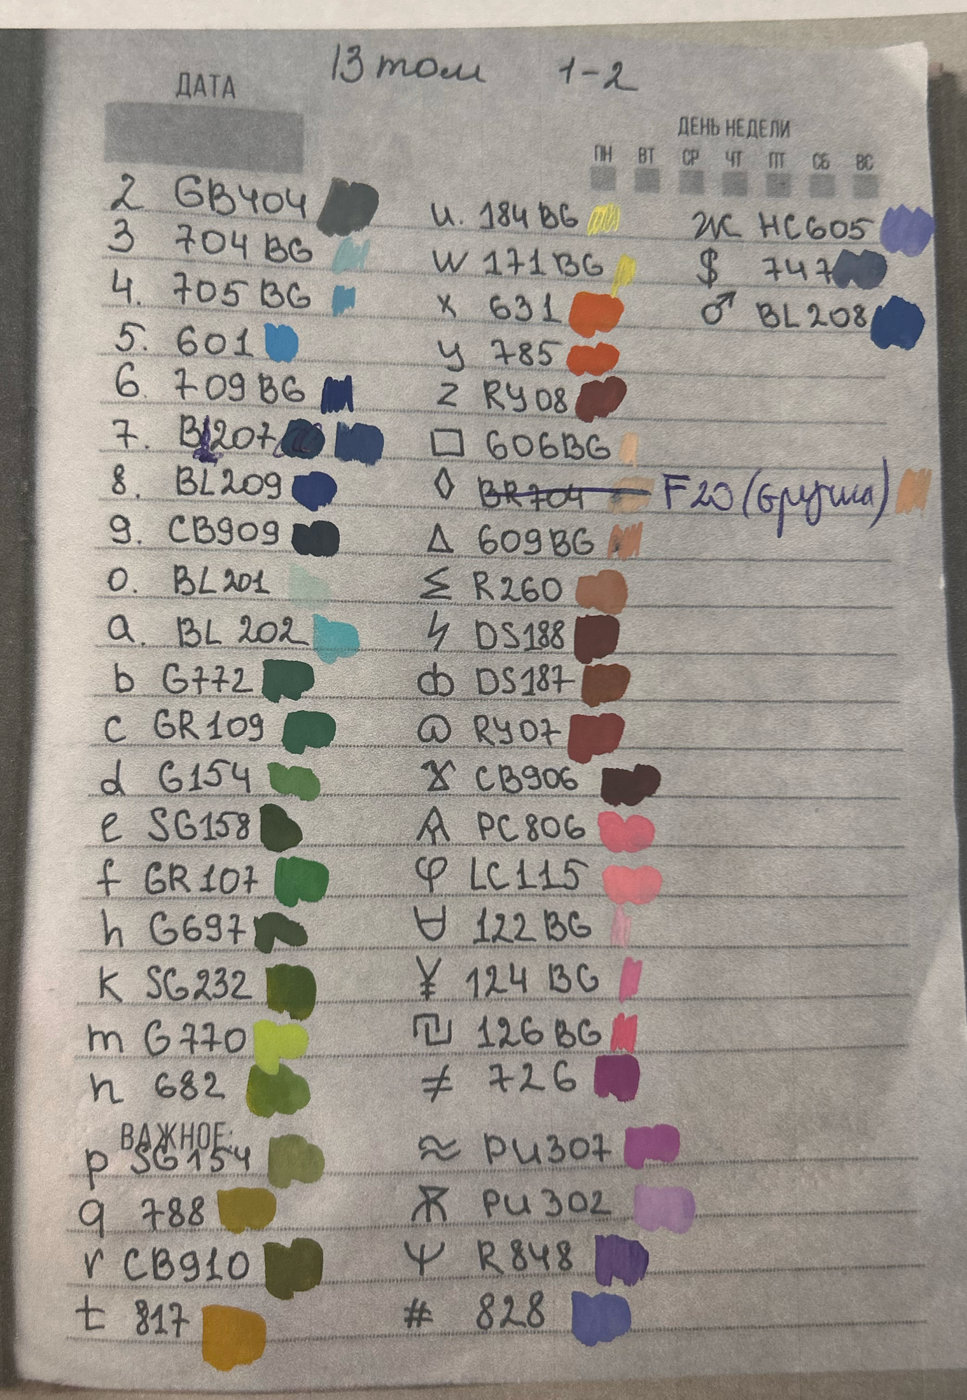 13 том 1-2
ДАТА
ДЕНЬ НЕДЕЛИ
ПН ВТ СР ЧТ ПТ СБ ВС
2 GB404
3 704 BG
4. 705 BG
5. 601
6. 709 BG
7. BL207
8. BL209
9. CB909
0. BL201
a. BL 202
b G772
c GR 109
d G154
e SG158
f GR 107
h G697
k SG232
m G770
n 682
ВАЖНОЕ:
p SG154
q 788
r CB910
t 817
u. 184 BG
w 171 BG
x 631
y 785
z RY08
□ 606BG
◊ BR704 F20 (Груша)
Δ 609BG
Σ R260
ϟ DS188
ф DS187
@ RY07
CB906
PC806
φ LC115
∀ 122 BG
¥ 124 BG
₪ 126 BG
≠ 726
≈ PU307
Ѫ PU302
Ψ R848
# 828
Ж HC605
$ 747
♂ BL208